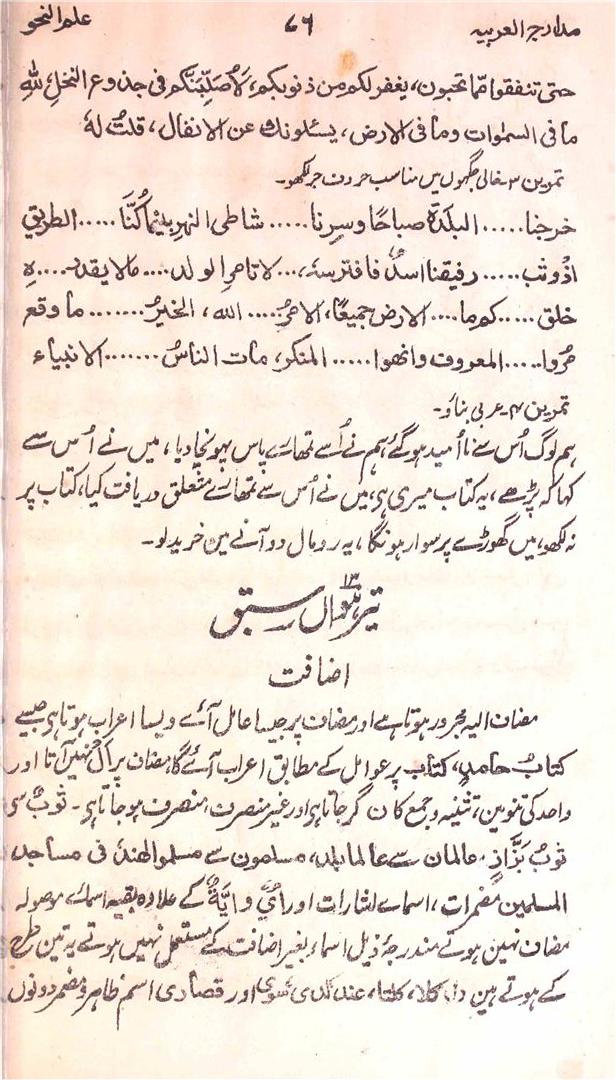 مدارج العربیہ ۷۶ علم النحو
حتی تنفقوا ممّا تحبون، یغفر لکم من ذنوبکم، لَاُصَلِّبَنَّکُم فی جذوع النخل، للّٰہِ
ما فی السمٰوات وما فی الارض، یسئلونک عن الانفال، قلتُ لہٗ
تمرین ۳۔ خالی جگہوں میں مناسب حروف جر لکھو۔
خرجنا..... البلدۃ صباحًا وسرنا..... شاطی النہر بینما کُنَّا..... الطریق
اذ وثب..... رفیقنا اسدٌ فافترسہٗ،... لا تامر الولد.... مالا یقدر.... ہٖ
خلق.....کم ما.... الارض جمیعًا، الامرُ.... اللہ، الخیرُ....... ما وقع
مُروا..... المعروف وانھوا..... المنکر، مات الناسُ....... الانبیاء
تمرین ۴۔ عربی بناؤ۔
ہم لوگ اُس سے نا اُمید ہو گئے ہم نے اُسے تمھارے پاس پہونچا دیا، میں نے اُس سے
کہا کہ پڑھے، یہ کتاب میری ہی، میں نے اُس سے تمھارے متعلق دریافت کیا، کتاب پر
نہ لکھو، میں گھوڑے پر سوار ہونگا، یہ رومال دو آنے مین خرید لو۔
تیرہواں سبق ۱۳
اضافت
مضاف الیہ مجرور ہوتا ہے اور مضاف پر جیسا عامل آئے ویسا اعراب ہوتا ہی جیسے
کتابُ حامدٍ، کتاب پر عوامل کے مطابق اعراب آئے گا، مضاف پر ال نہیں آتا اور
واحد کی تنوین، تثنیہ و جمع کا ن گر جاتا ہی اور غیر منصرف، منصرف ہو جاتا ہی۔ ثوبٌ سی
ثوبُ بَزَّازٍ، عالمان سے عالما بلد، مسلمون سے مسلمو الھند فی مساجد
المسلمین مضمرات، اسماے اشارات اور اَیٌّ و اَیَّۃٌ کے علاوہ بقیہ اسمائے موصولہ
مضاف نہین ہوتے مندرجۂ ذیل اسماء بغیر اضافت کے مستعمل نہیں ہوتے یہ تین طرح
کے ہوتے ہین (۱) کلا، کلتا، عند لدی سوی اور قصاری اسم ظاہر و مضمر دونوں